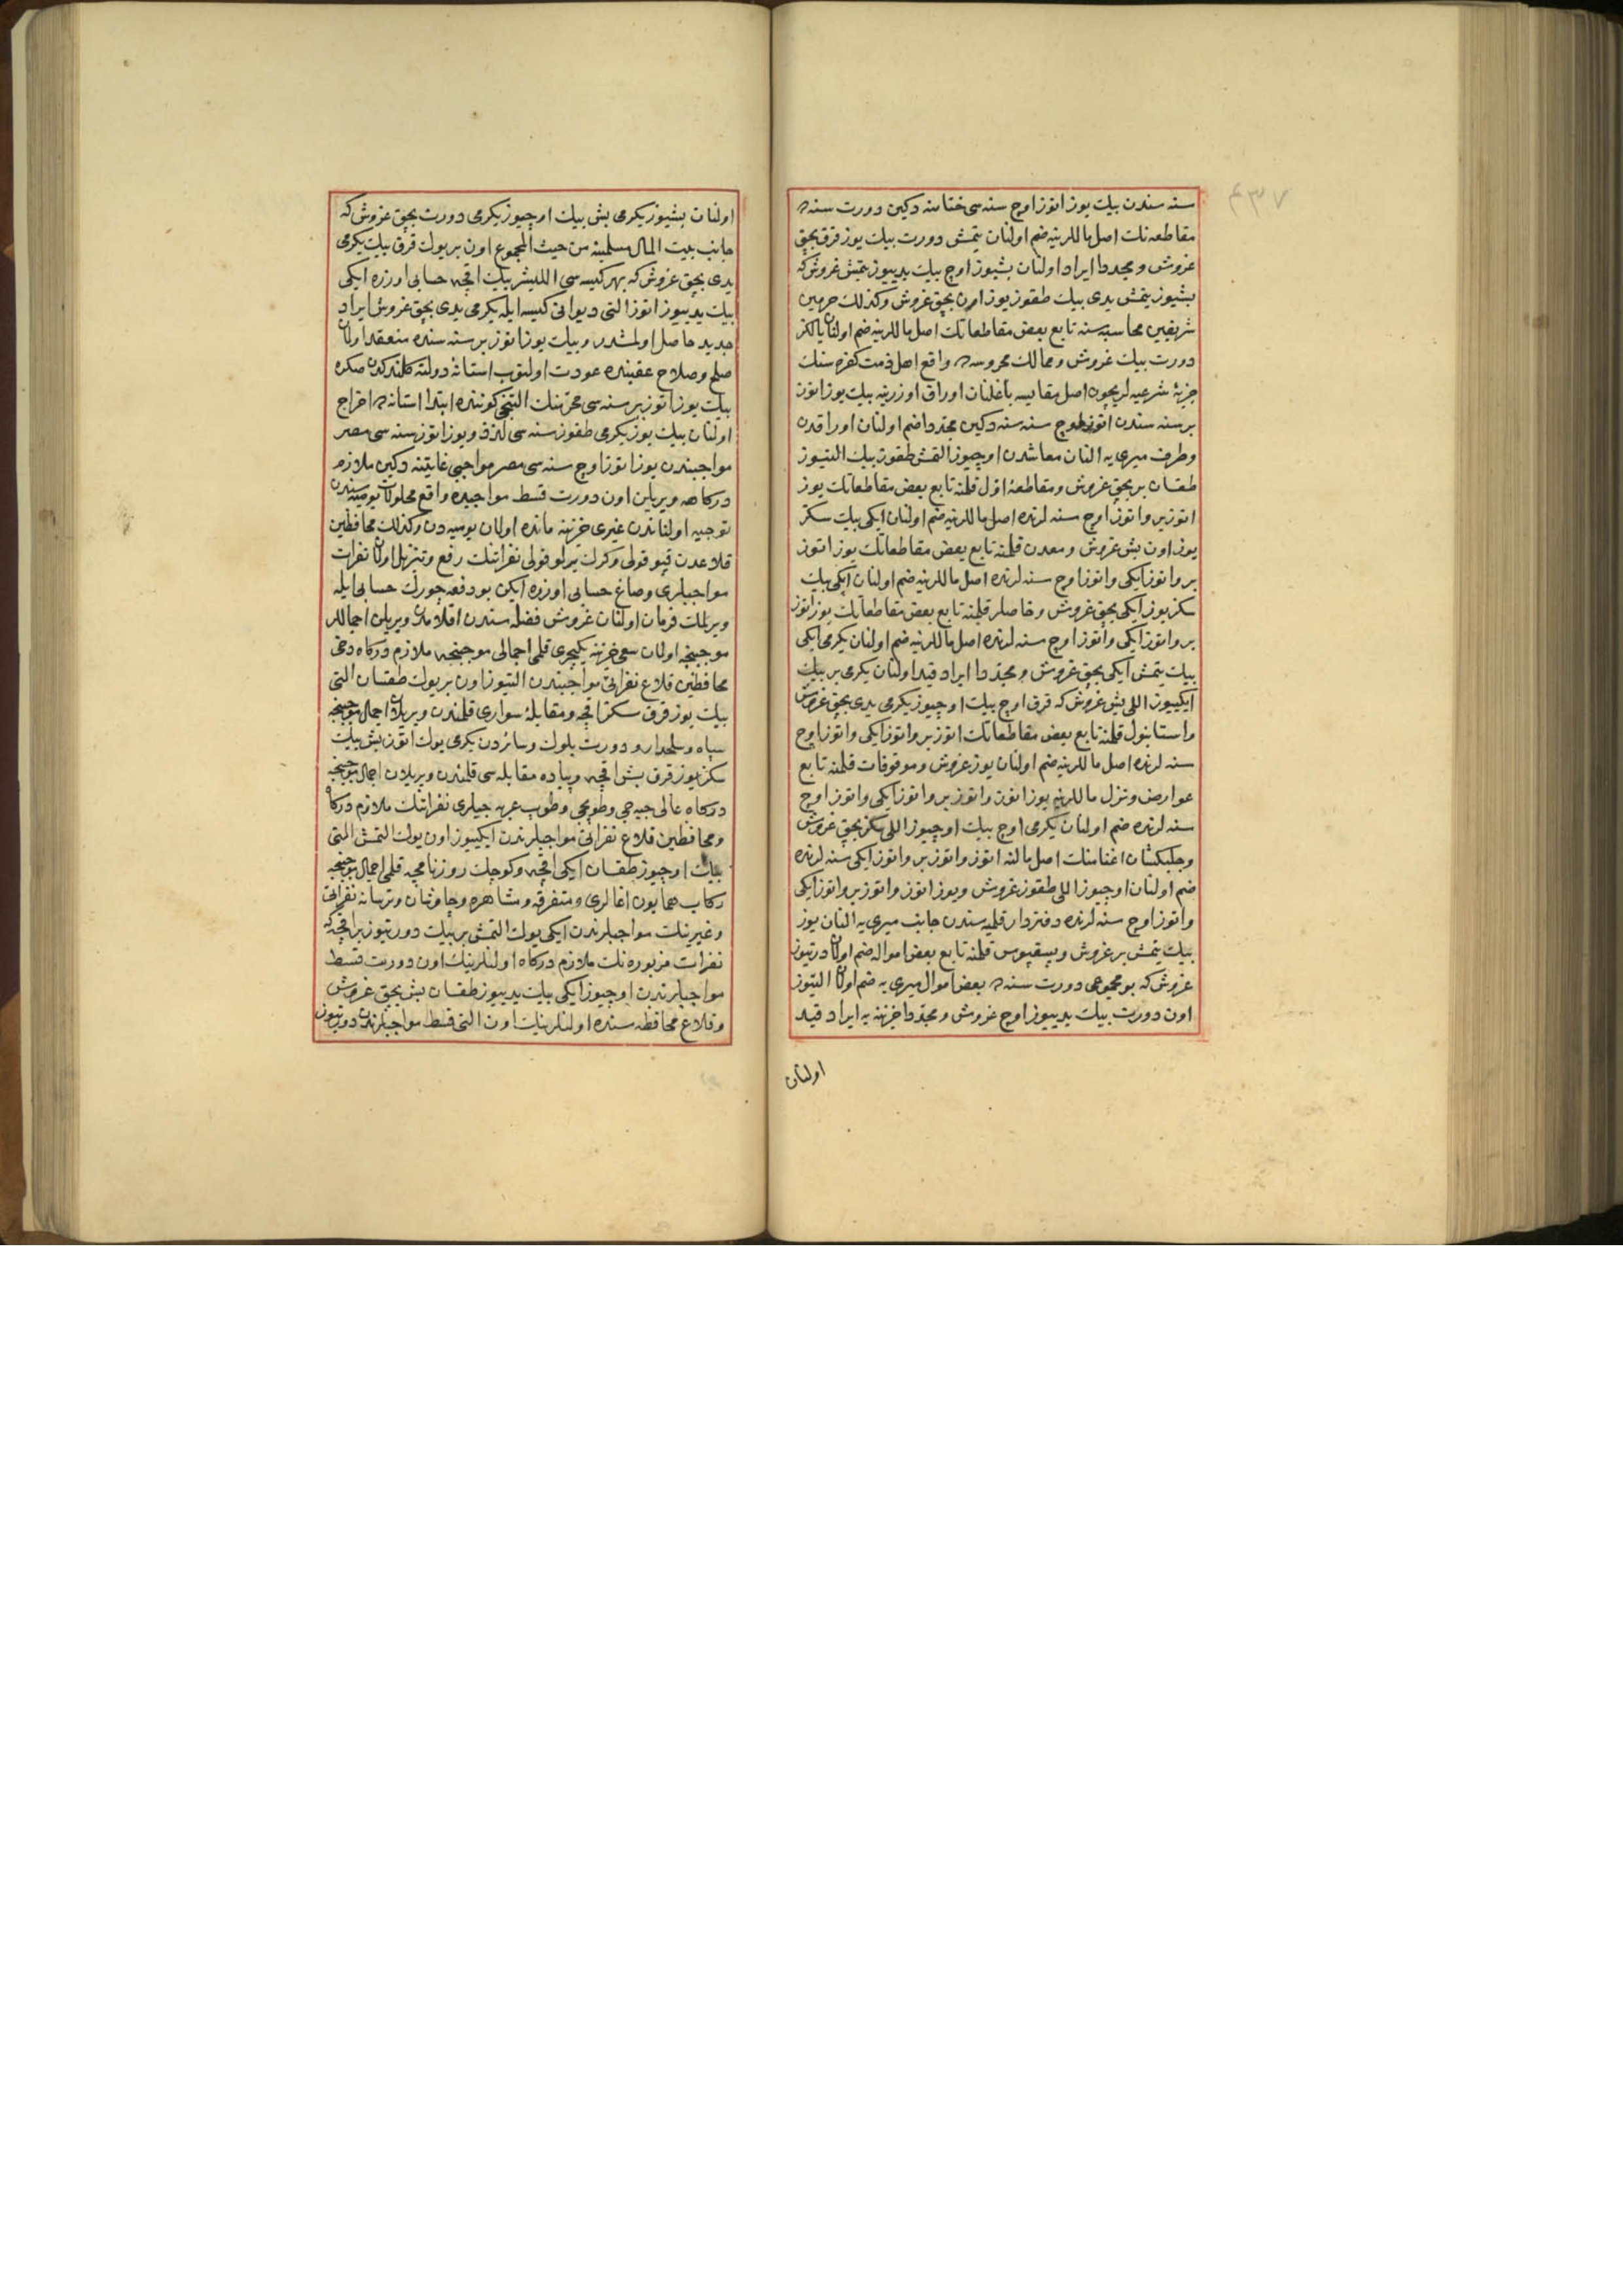 سنه سندن بیك یوز اتوز اوچ سنه سی ختامنه دكین دورت سنه ده
مقاطعه نك اصل ماللرینه ضم اولنان یتمش دورت بیك یوز قرق بچق
غروش و مجددا ایراد اولنان بشیوز اوچ بیك یدییوز یتمش غروش كه
بشیوز یتمش یدی بیك طقوز یوز اون بچق غروش وكذلك حرمین
شریفین محاسبه سنه تابع بعض مقاطعاتك اصل ماللرینه ضم اولنان یالكز
دورت بیك غروش و ممالك محروسه ده واقع اهل ذمت كفره سنك
جزیهٔ شرعیه لریچون اصل مقایسه باغلنان اوراق اوزرینه بیك یوز اتوز
بر سنه سندن اتوز اوچ سنه سنه دكین مجددا ضم اولنان اوراقدن
وطرف میری یه النان معاشدن اوچیوز التمش طقوز بیك التیوز
طقسان بر بچق غروش و مقاطعهٔ اول قلمنه تابع بعض مقاطعاتك یوز
اتوز بر و اتوز اوچ سنه لرنده اصل ماللرینه ضم اولنان ایكی بیك سكز
یوز اون بش غروش و معدن قلمنه تابع بعض مقاطعاتك یوز اتوز
بر و اتوز ایكی و اتوز اوچ سنه لرنده اصل ماللرینه ضم اولنان ایكی بیك
سكز یوز ایكی بچق غروش و خاصلر قلمنه تابع بعض مقاطعاتك یوز اتوز
بر و اتوز ایكی و اتوز اوچ سنه لرنده اصل ماللرینه ضم اولنان یكرمی ایكی
بیك یتمش ایكی بچق غروش و مجددا ایراد قید اولنان یكرمی بر بیك
ایكییوز اللی بش غروش كه قرق اوچ بیك اوچیوز یكرمی یدی بچق غروش
و استانبول قلمنه تابع بعض مقاطعاتك اتوز بر و اتوز ایكی و اتوز اوچ
سنه لرنده اصل ماللرینه ضم اولنان یوز غروش و موقوفات قلمنه تابع
عوارض و نزل ماللرینه یوز اتوز و اتوز بر و اتوز ایكی و اتوز اوچ
سنه لرنده ضم اولنان یكرمی اوچ بیك اوچیوز اللی سكز بچق غروش
و جلبكشان اغنامنك اصل مالنه اتوز و اتوز بر و اتوز ایكی سنه لرنده
ضم اولنان اوچیوز اللی طقوز غروش و یوز اتوز و اتوز بر و اتوز ایكی
و اتوز اوچ سنه لرنده دفتردار قلمیه سندن جانب میری یه النان یوز
بیك یتمش بر غروش و پسقپوس قلمنه تابع بعض امواله ضم اولنان درتیوز
غروش كه بو مجموعی دورت سنه ده بعض اموال میری یه ضم اولنان التیوز
اون دورت بیك یدییوز اوچ غروش و مجددا خزینه یه ایراد قید
اولنان
اولنان بشیوز یكرمی بش بیك اوچیوز یكرمی دورت بچق غروش كه
جانب بیت المال مسلمینه من حیث المجموع اون بر یوك قرق بیك یكرمی
یدی بچق غروش كه بهر كیسه سی اللیشر بیك اقچه حسابی اوزره ایكی
بیك یدییوز اتوز التی دیوانی كیسه ایله یكرمی یدی بچق غروش ایراد
جدید حاصل اولمشدر و بیك یوز اتوز بر سنه سنده منعقد اولان
صلح و صلاح عقبنده عودت اولنوب استانهٔ دولته كلندكدن صكره
بیك یوز اتوز بر سنه سی محرمنك التنجی كوننده ابتدا استانه ده اخراج
اولنان بیك یوز یكرمی طقوز سنه سی لذذ و یوز اتوز سنه سی مصر
مواجبندن یوز اتوز اوچ سنه سی مصر مواجبی غایتنه دكین ملازم
دركاهه ویریلن اون دورت قسط مواجبده واقع محلولات یومیه سندن
توجیه اولناندن غیری خزینه مانده اولان یومیه دن وكذلك محافظین
قلاعدن قپو قولی وكرك یرلو قولی نفراتنك رفع و تنزیل اولنان نفرات
مواجبلری و صاغ حسابی اوزره ایكن بو دفعه چورك حسابی ایله
ویرلمك فرمان اولنان غروش فضله سندن اقلامدن ویریلن اجماللر
موجبنجه اولان سعی خزینه یكیچری قلمی اجمالی موجبنجه ملازم دركاه دخی
محافظین قلاع نفراتی مواجبندن التیوز اون بر یوك طقسان التی
بیك یوز قرق سكز اقچه و مقابلهٔ سواری قلمندن ویریلان اجمال موجبنجه
سپاه و سلحدار و دورت بلوك و سائردن یكرمی یوك اتوز بش بیك
سكز یوز قرق بش اقچه و پیاده مقابله سی قلمندن ویریلان اجمال موجبنجه
دركاه عالی جبه جی و طوپجی و طوپ عربه جیلری نفراتنك ملازم دركاه
و محافظین قلاع نفراتی مواجبلرندن ایكییوز اون یوك التمش التی
بیك اوچیوز طقسان ایكی اقچه و كوچك روزنامچه قلمی اجمالی موجبنجه
ركاب همایون اغالری و متفرقه و مشاهره و چاوشان و ترسانه نفراتی
و غیرینك مواجبلرندن ایكی یوك التمش بر بیك دورتیوز بر اقچه كه
نفرات مزبوره نك ملازم دركاه اولنلرینك اون دورت قسط
مواجبلرندن اوچیوز ایكی بیك یدییوز طقسان بش بچق غروش
و قلاع محافظه سنده اولنلرینك اون التی قسط مواجبلرندن دورتیوز